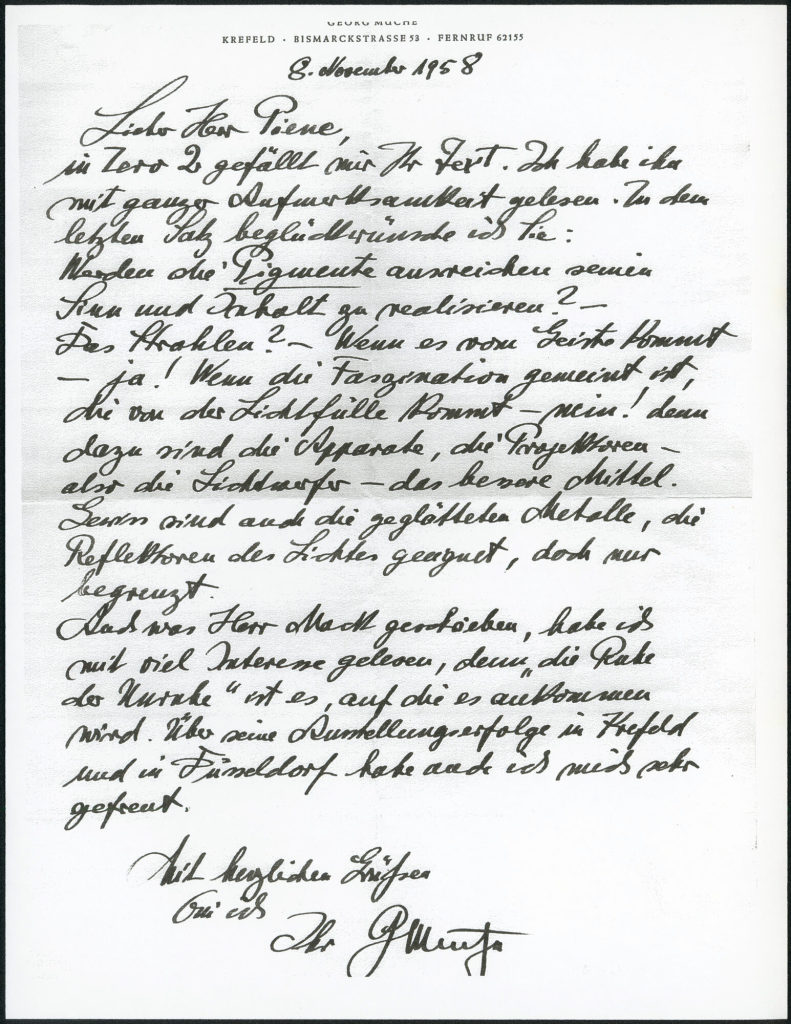 GEORG MUCHE
KREFELD · BISMARCKSTRASSE 53 · FERNRUF 62155
8. November 1958
Lieber Herr Piene,
in Zero 2 gefällt mir Ihr Text. Ich habe ihn
mit ganzer Aufmerksamkeit gelesen. Zu dem
letzten Satz beglückwünsche ich Sie:
Werden die Pigmente ausreichen seinen
Sinn und Inhalt zu realisieren? –
Das Strahlen? – Wenn es vom Geiste kommt
– ja! Wenn die Faszination gemeint ist,
die von der Lichtfülle kommt – nein! denn
dazu sind die Apparate, die Projektoren –
also die Lichtwerfer – das bessere Mittel.
Gewiss sind auch die geglätteten Metalle, die
Reflektoren des Lichtes geeignet, doch nur
begrenzt.
Auch was Herr Mack geschrieben, habe ich
mit viel Interesse gelesen, denn „die Ruhe
der Unruhe“ ist es, auf die es ankommen
wird. Über seine Ausstellungserfolge in Krefeld
und in Düsseldorf habe auch ich mich sehr
gefreut.
Mit herzlichen Grüßen
bin ich
Ihr GMuche